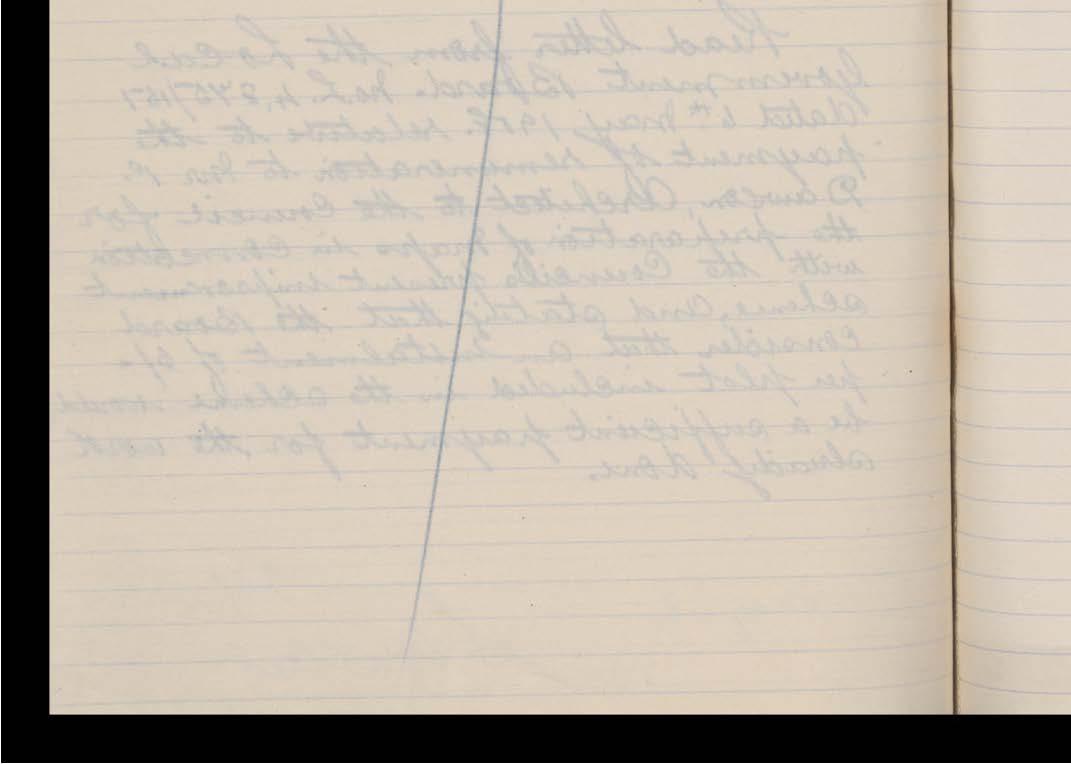 Read letter from the Local
Government Board. No L. 4,
dated 6th May, 1908. relative to the
payment of remuneration to Mr R.
Dawson, Architect to the Council for
the preparation of maps in connection
with the Councils present improvement
scheme, and stating that the Board
consider that an instalment of 5/-
per plot included in the scheme would
be a sufficient payment for the work
already done.